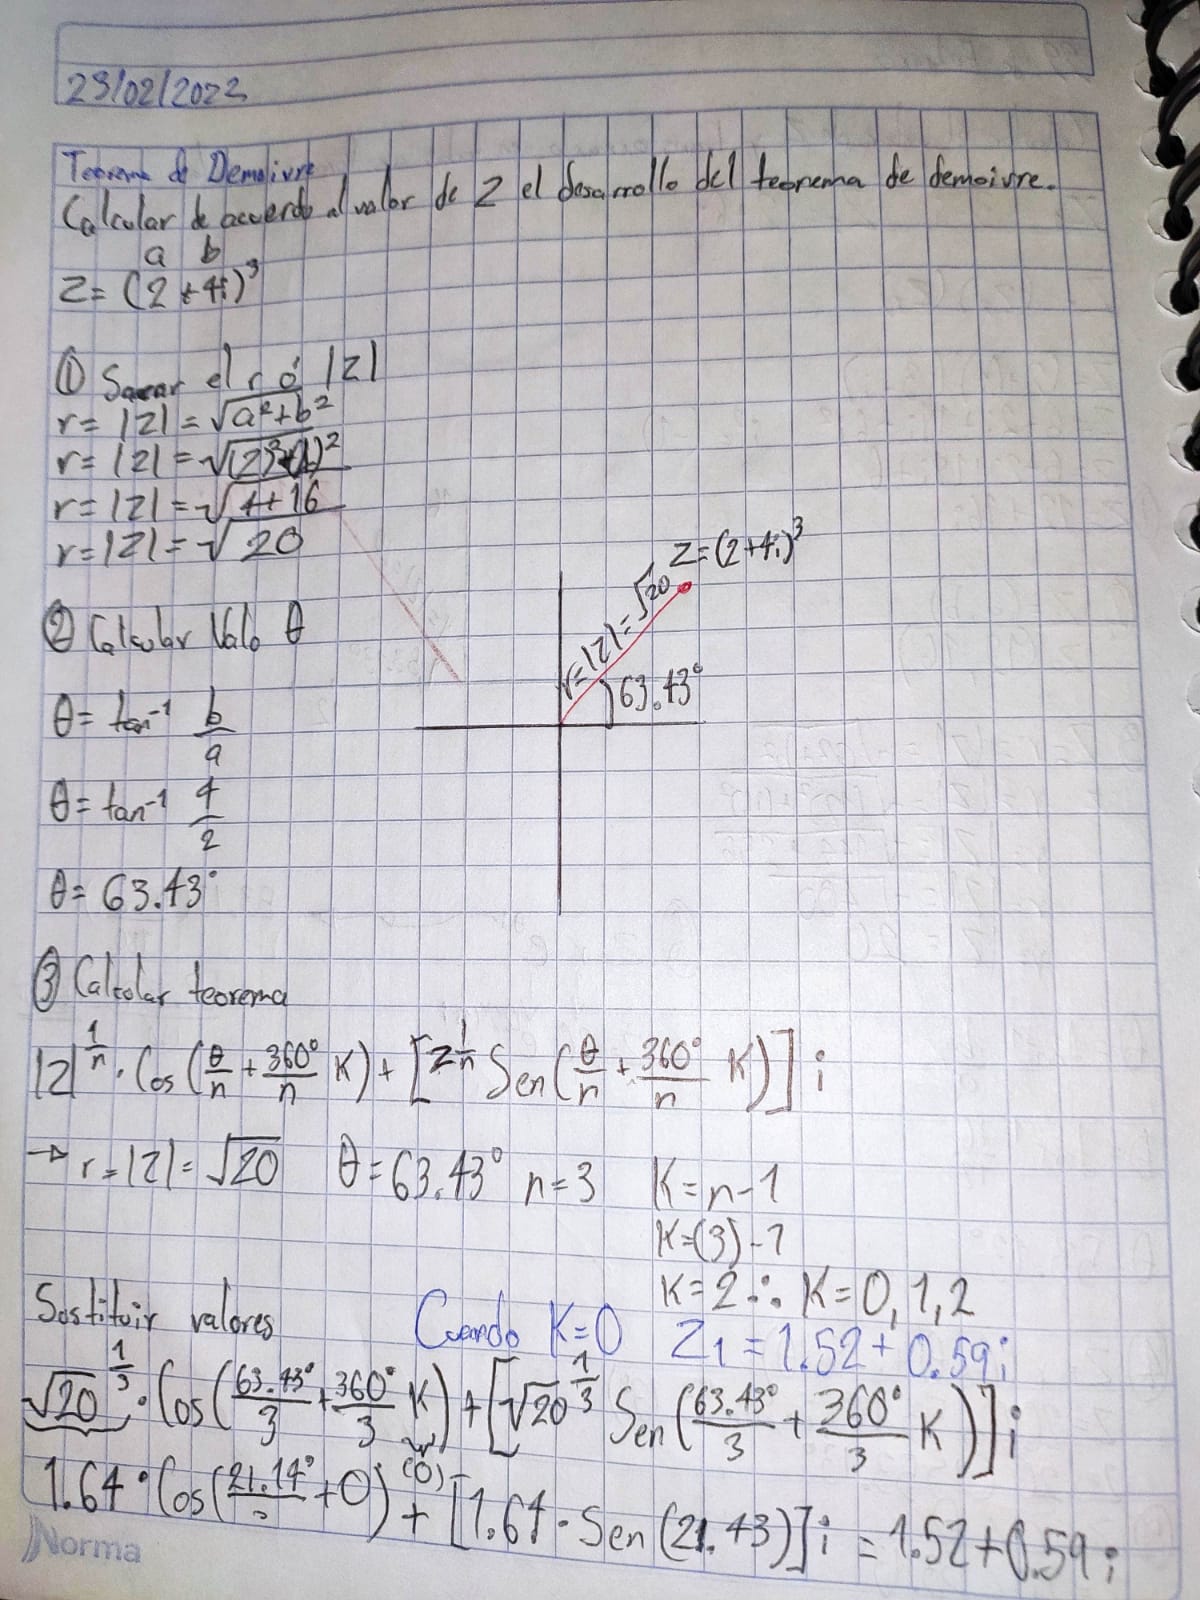 23/02/2022
Teorema de Demoivre
Calcular de acuerdo al valor de Z el desarrollo del teorema de demoivre.
a b
Z= (2+4i)³
① Sacar el r ó |Z|
r= |Z| = √a²+b²
r= |Z| = √(2)²+(4)²
r= |Z| = √4+16
r= |Z| = √20
Z=(2+4i)³
r=|Z|=√20
63.43°
② Calcular Valo θ
θ= tan⁻¹ b/a
θ= tan⁻¹ 4/2
θ= 63.43°
③ Calcular teorema
|Z|^(1/n) · Cos(θ/n + 360°/n K) + [Z^(1/n) Sen(θ/n + 360°/n K)] i
→ r=|Z|=√20 θ=63.43° n=3 K=n-1
K=(3)-1
K=2 ∴ K=0,1,2
Sustituir valores Cuando K=0 Z1 = 1.52+0.59i
√20^(1/3) · Cos(63.43°/3 + 360°/3 K) + [√20^(1/3) Sen(63.43°/3 + 360°/3 K)] i
(0)
1.64 · Cos(21.14° + 0) + [1.64 · Sen(21.43)] i = 1.52+0.59i
Norma